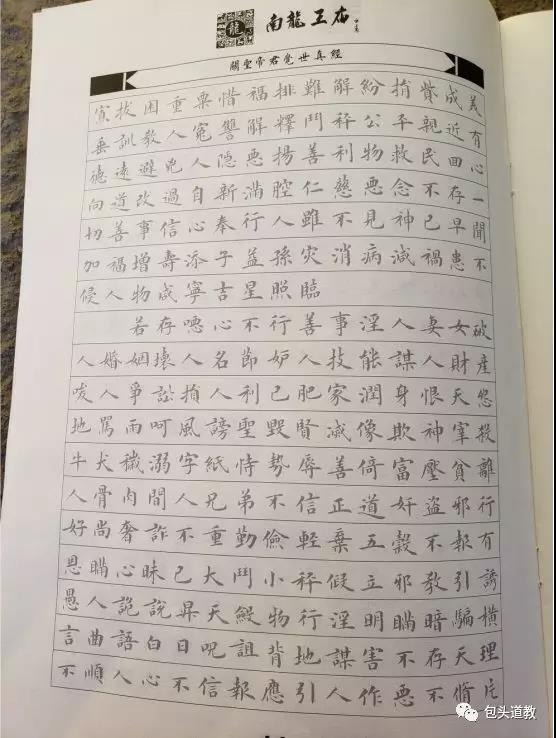 龍 南龍王庙
關聖帝君覺世真經
寡拔困重粟惜福排難解紛捐貲成美
垂訓教人冤讐解釋鬥秤公平親近有
德遠避兇人隱惡揚善利物救民回心
向道改過自新滿腔仁慈惡念不存一
切善事信心奉行人雖不見神已早聞
加福增壽添子益孫灾消病減禍患不
侵人物咸寧吉星照臨
若存噁心不行善事淫人妻女破
人婚姻壞人名節妒人技能謀人財産
唆人爭訟損人利己肥家潤身恨天怨
地罵雨呵風謗聖毀賢滅像欺神宰殺
牛犬穢溺字紙恃勢辱善倚富壓貧離
人骨肉間人兄弟不信正道奸盜邪行
好尚奢詐不重勤儉輕棄五穀不報有
恩瞞心昧己大鬥小秤假立邪教引誘
愚人詭說昇天斂物行淫明瞞暗騙橫
言曲語白日呪詛背地謀害不存天理
不順人心不信報應引人作惡不脩片
包头道教